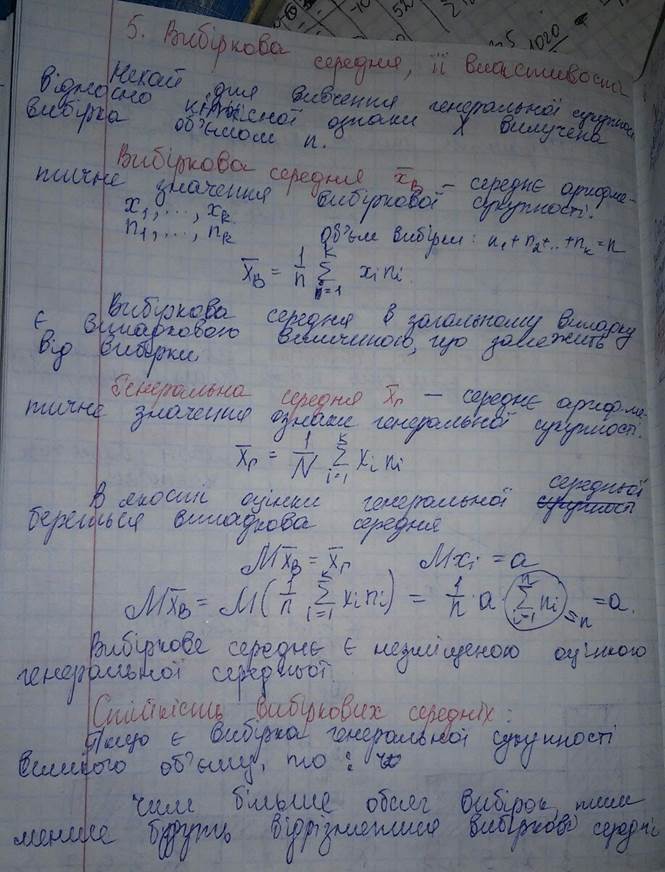 5. Вибіркова середня, її властивості
Нехай для вивчення генеральної сукупності
відносно кількісної ознаки X вилучена
вибірка об'ємом n.
Вибіркова середня x̄в – середнє арифме-
тичне значення вибіркової сукупності.
x₁, ..., xₖ
n₁, ..., nₖ об'єм вибірки: n₁+n₂+..+nₖ=n
x̄в = 1/n ∑ᵢ₌₁ᵏ xᵢnᵢ
Вибіркова середня в загальному випадку
є випадковою величиною, що залежить
від вибірки
Генеральна середня x̄г – середнє арифме-
тичне значення ознаки генеральної сукупності.
x̄г = 1/N ∑ᵢ₌₁ᵏ xᵢnᵢ
В якості оцінки генеральної середньої
береться випадкова середня
Mx̄в = x̄г Mxᵢ = a
Mx̄в = M(1/n ∑ᵢ₌₁ᵏ xᵢnᵢ) = 1/n a ∑ᵢ₌₁ⁿ nᵢ =n = a.
Вибіркове середнє є незміщеною оцінкою
генеральної середньої
Стійкість вибіркових середніх:
Якщо є вибірка генеральної сукупності
великого об'єму, то:
чим більше обсяг вибірок, тим
менше будуть відрізнятися вибіркові середні